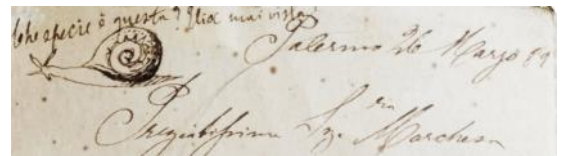 Che specie è questa? Glia mai vista?
Palermo 26 Marzo 89
Pregiatissima Sigra Marchesa